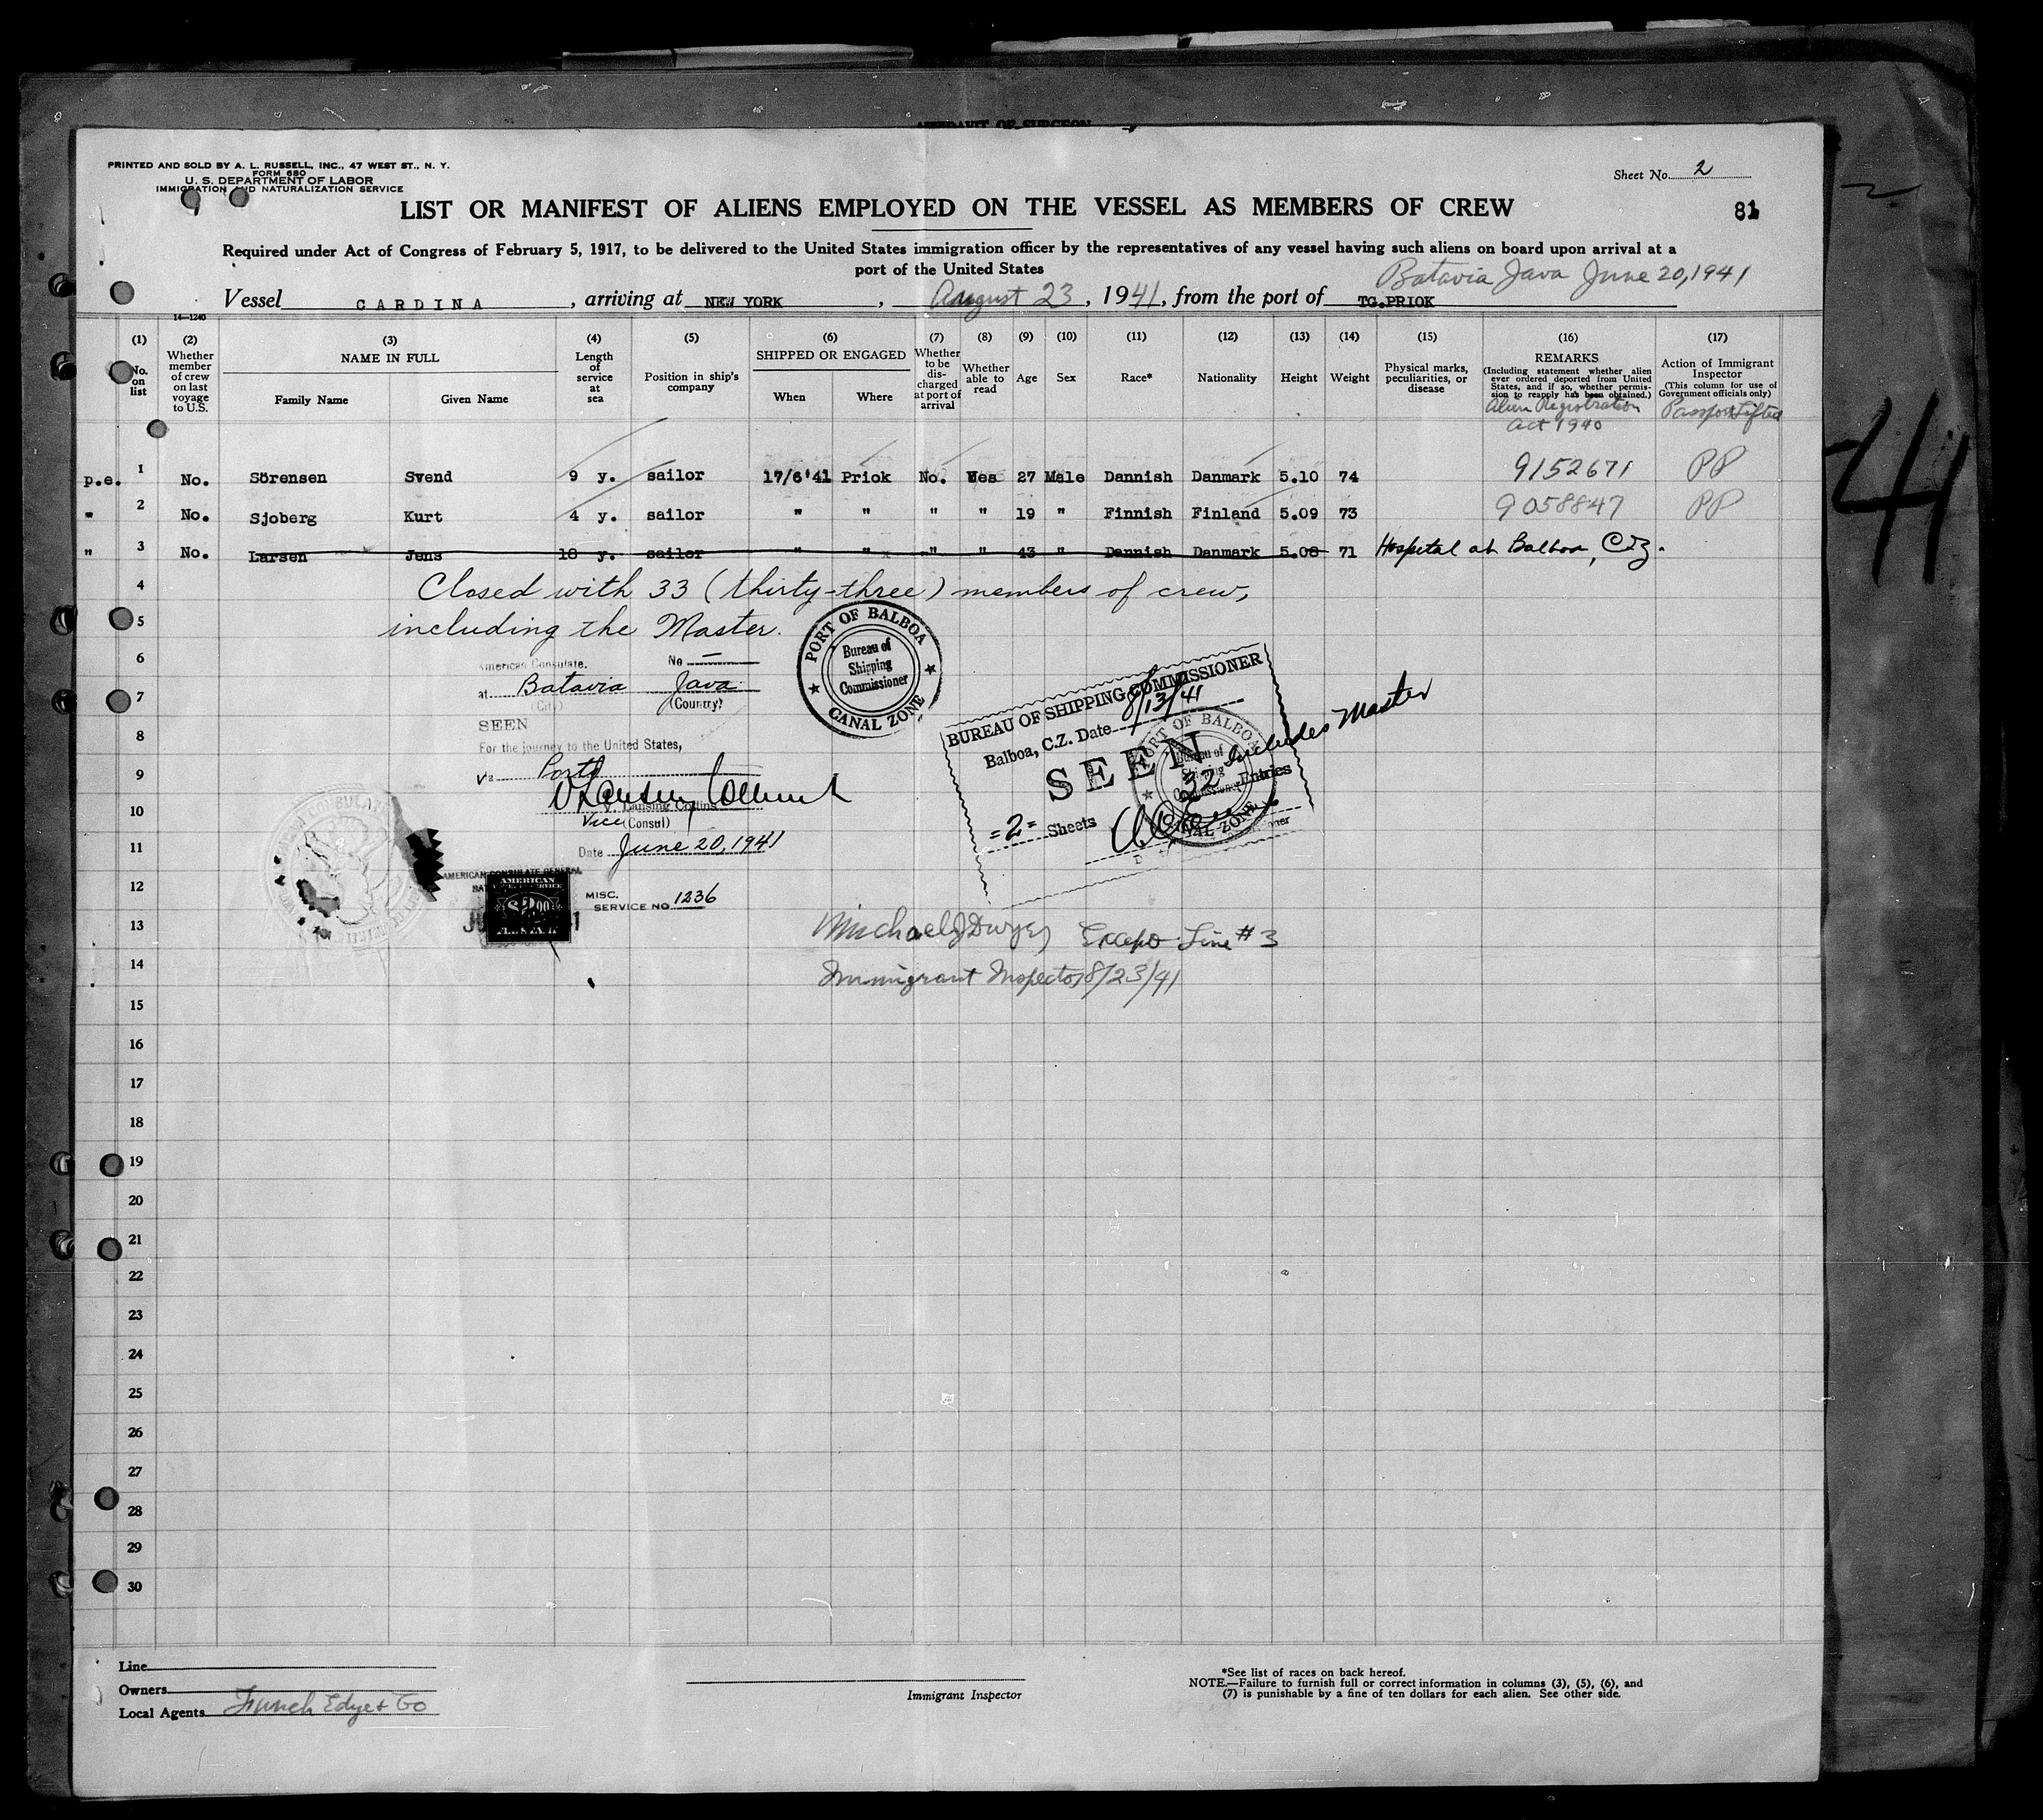 AFFIDAVIT OF SURGEON
PRINTED AND SOLD BY A. L. RUSSELL, INC., 47 WEST ST., N. Y.
FORM 680
U. S. DEPARTMENT OF LABOR
IMMIGRATION AND NATURALIZATION SERVICE
Sheet No. 2
LIST OR MANIFEST OF ALIENS EMPLOYED ON THE VESSEL AS MEMBERS OF CREW
81
Required under Act of Congress of February 5, 1917, to be delivered to the United States immigration officer by the representatives of any vessel having such aliens on board upon arrival at a
port of the United States
Batavia Java June 20, 1941
Vessel CARDINA, arriving at NEW YORK, August 23, 1941, from the port of TG.PRIOK
14—1240
(1) (2) (3) (4) (5) (6) (7) (8) (9) (10) (11) (12) (13) (14) (15) (16) (17)
No. on list
Whether member of crew on last voyage to U.S.
NAME IN FULL
Family Name Given Name
Length of service at sea
Position in ship's company
SHIPPED OR ENGAGED
When Where
Whether to be discharged at port of arrival
Whether able to read
Age
Sex
Race*
Nationality
Height
Weight
Physical marks, peculiarities, or disease
REMARKS
(Including statement whether alien ever ordered deported from United States, and if so, whether permission to reapply has been obtained.)
Alien Registration
Act 1940
Action of Immigrant Inspector
(This column for use of Government officials only)
Passport Lifted
p.e. 1 No. Sörensen Svend 9 y. sailor 17/6'41 Priok No. Yes 27 Male Dannish Danmark 5.10 74 9152671 PP
" 2 No. Sjoberg Kurt 4 y. sailor " " " " 19 " Finnish Finland 5.09 73 9058847 PP
" 3 No. Larsen Jens 18 y. sailor " " " " 43 " Dannish Danmark 5.08 71 Hospital at Balboa, C.Z.
4 Closed with 33 (thirty-three) members of crew,
5 including the Master.
PORT OF BALBOA
Bureau of
Shipping
Commissioner
CANAL ZONE
6 American Consulate. No —
7 at Batavia Java
(City) (Country)
SEEN
8 For the journey to the United States,
9 Via Ports
10 V. Lansing Collins
Vice (Consul)
11 Date June 20, 1941
BUREAU OF SHIPPING COMMISSIONER
Balboa, C.Z. Date 8/13/41
SEEN
32 Entries
Includes Master
=2= Sheets
PORT OF BALBOA
Bureau of
Shipping
Commissioner
CANAL ZONE
AMERICAN CONSULATE GENERAL
12
AMERICAN
$2.00
MISC.
SERVICE NO. 1236
13 Michael J Dwyer Except Line #3
14 Immigrant Inspector 8/23/41
15
16
17
18
19
20
21
22
23
24
25
26
27
28
29
30
Line
Owners
Local Agents Funch Edye & Co
Immigrant Inspector
*See list of races on back hereof.
NOTE.—Failure to furnish full or correct information in columns (3), (5), (6), and
(7) is punishable by a fine of ten dollars for each alien. See other side.